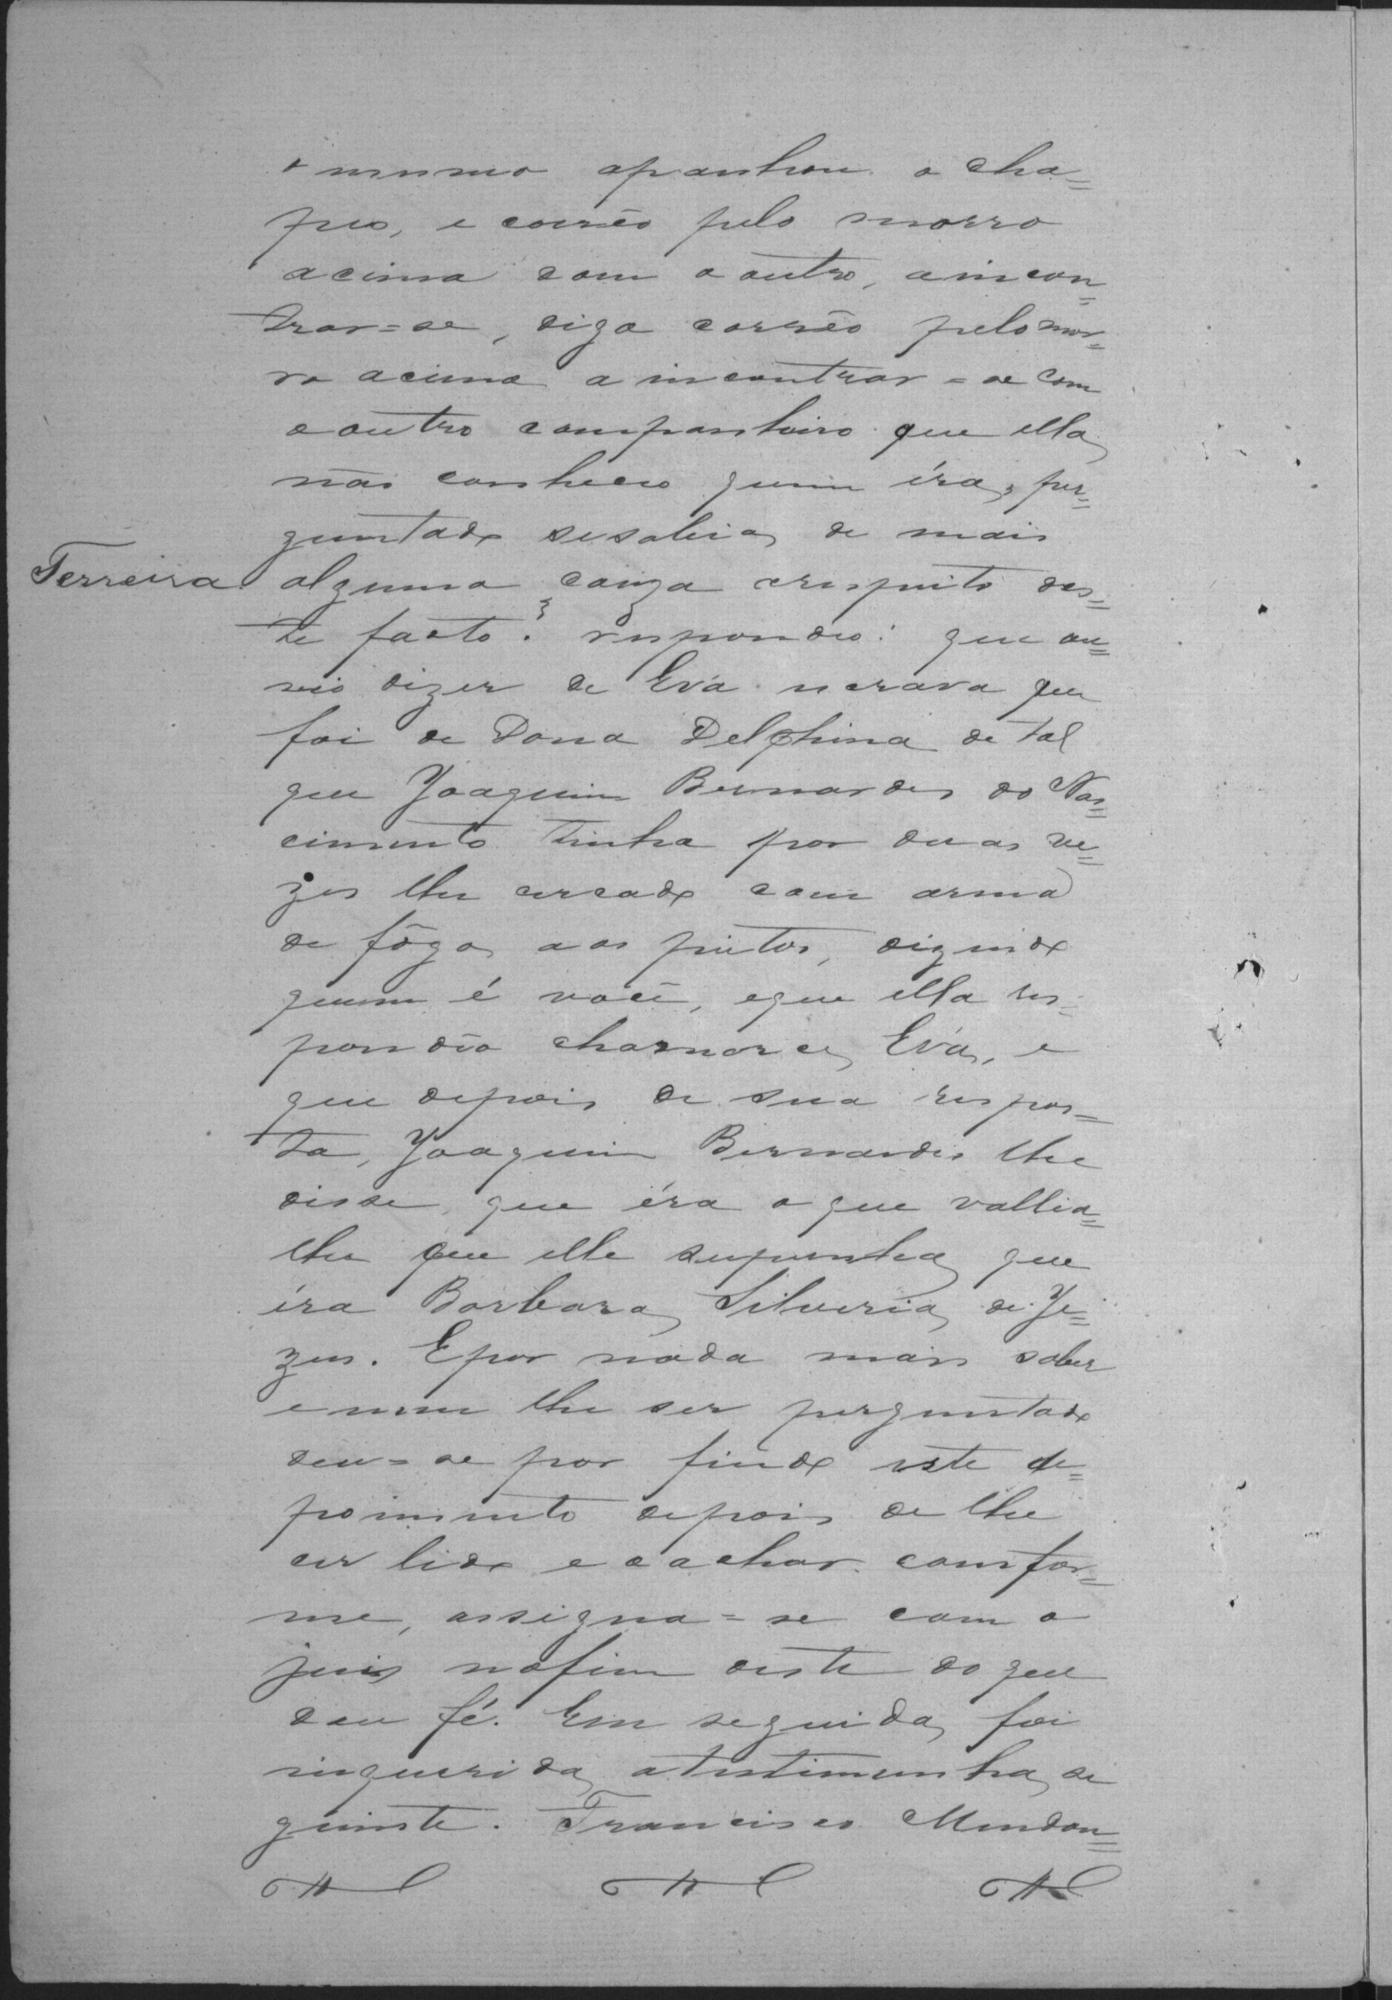 o mesmo apanhou o cha=
peo, e corrêo pelo morro
acima com o outro, a incon=
trar=se, digo corrêo pelo mor=
ro acima a incontrar=se com
o outro companheiro que ella
não conheceo quem éra, per=
guntado se sabia de mais
Ferreira alguma couza arespeito des=
te facto? respondeo: que ou=
vio dizer de Eva escrava que
foi de Dona Delphina de tal
que Joaquim Bernardes do Nas=
cimento tinha por duas ve=
zes lhe cercado com arma
de fôgo aos peitos, dizendo
quem é você, eque ella res=
pondêo chamar se Eva, e
que depois de sua respos=
ta, Joaquim Bernardes lhe
disse, que éra o que vallia=
lhe que elle supunha que
éra Barbara Silveria de Je=
zus. E por nada mais saber
e nem lhe ser perguntado
deu=se por findo este de=
poimento depois de lhe
ser lido e o achar comfor=
me, assigna=se com o
juis nofim deste do que
dou fé. Em seguida foi
inquerida a testimunha se
guinte. Francisco Mendon=